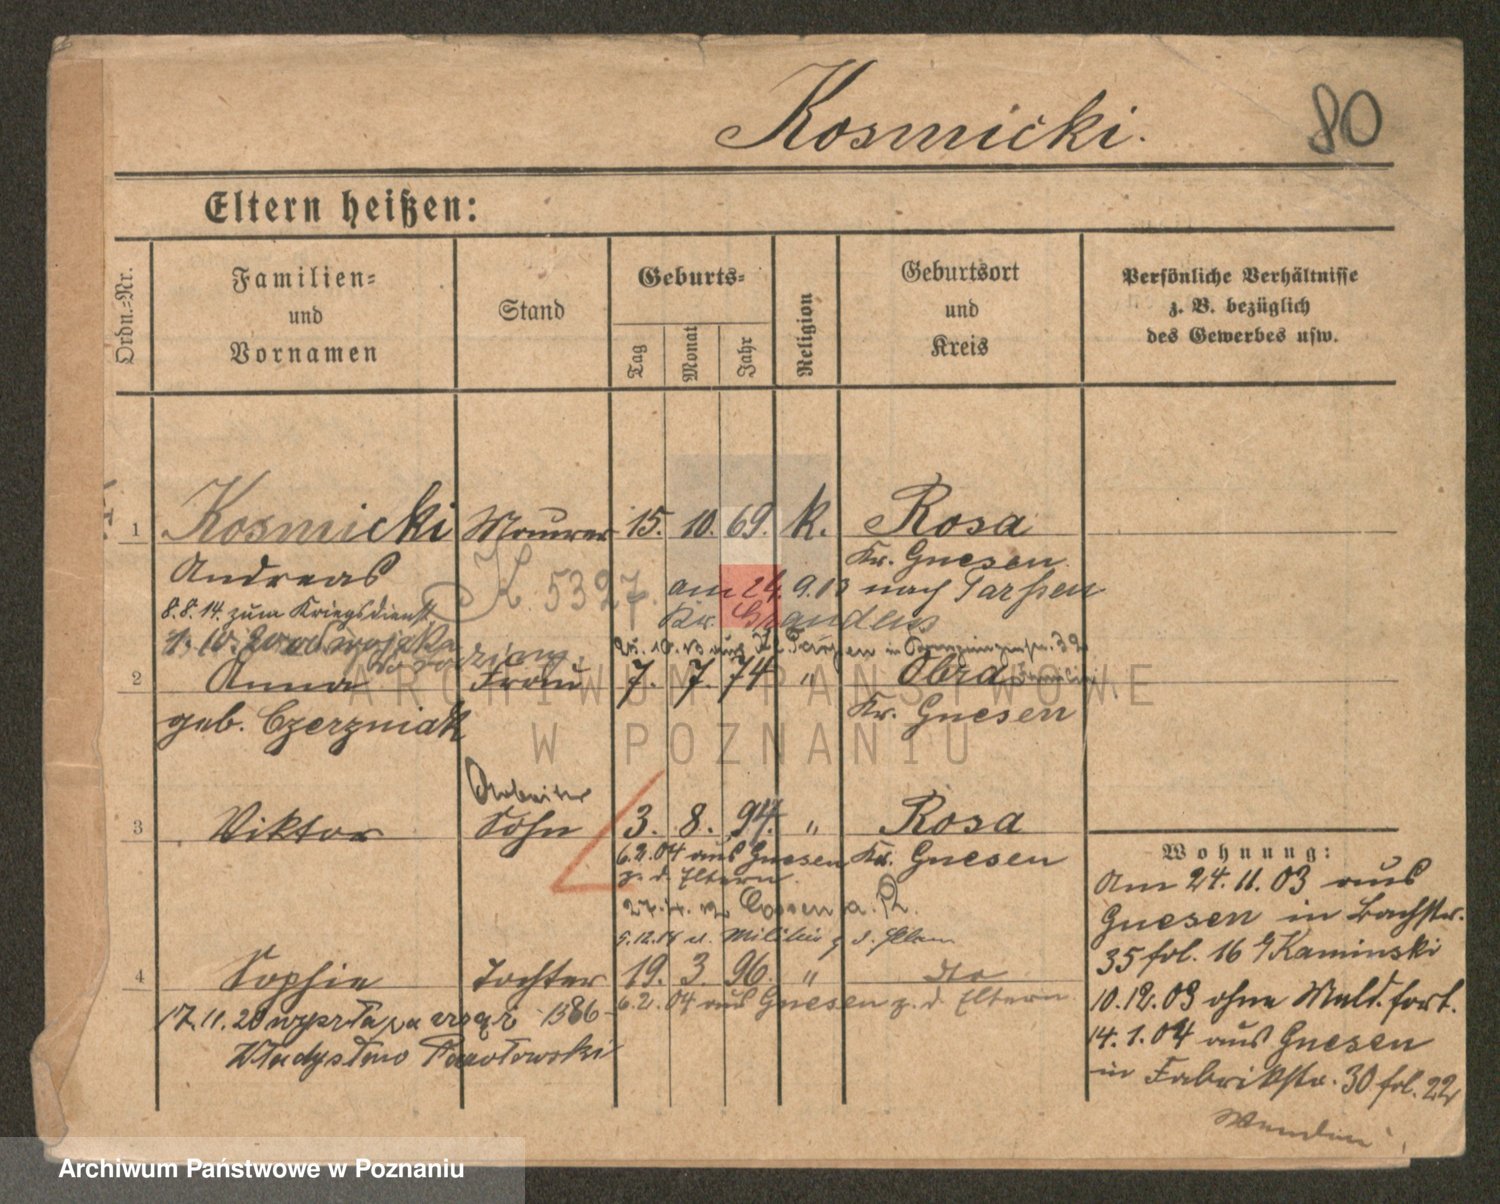 Kosmicki.
80
Eltern heißen:
Ordn.=Nr.
Familien=
und
Vornamen
Stand
Geburts=
Tag
Monat
Jahr
Religion
Geburtsort
und
Kreis
Persönliche Verhältnisse
z. B. bezüglich
des Gewerbes usw.
1 Kosmicki Maurer 15. 10. 69. k. Rosa
Andreas Kr. Gnesen
K. 5327. am 24. 9. 13 nach Tarpen
8.8.14. zum Kriegsdienst Kr. Graudenz
2 Anna Frau 7. 7. 74 " Obra
geb. Czerzniak Kr. Gnesen
Arbeiter
3 Viktor Sohn 3. 8. 94. " Rosa
6.2.04 aus Gnesen Kr. Gnesen
z. d. Eltern.
4 Sophie Tochter 19. 3. 96. " do
6.2.04 aus Gnesen z. d. Eltern.
17.11.20
Wohnung:
Am 24.11.03 aus
Gnesen in Bachstr.
35 fol. 16 b/Kaminski
10.12.03 ohne Meld. fort.
14.1.04 aus Gnesen
in Fabrikstr. 30 fol. 22
Wenden
ARCHIWUM PAŃSTWOWE
W POZNANIU
Archiwum Państwowe w Poznaniu